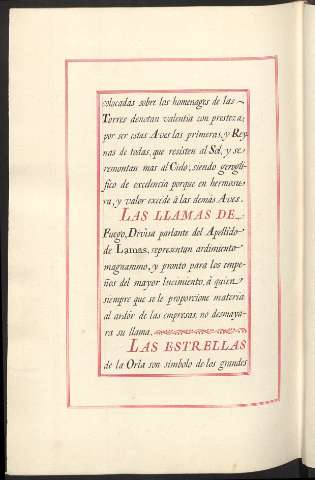 colocadas sobre los homenages de las
Torres denotan valentia con presteza;
por ser estas Aves las primeras, y Rey
nas de todas, que resisten al Sol, y se
remontan mas al Cielo; siendo geroglí-
fico de excelencia porque en hermosu-
ra, y valor excede à las demás Aves.
LAS LLAMAS DE
Fuego, Divisa parlante del Apellido
de Lamas, representan ardimiento
magnanimo, y pronto para los empe-
ños del mayor lucimiento, á quien
siempre que se le proporcione materia
al ardór de las empresas, no desmaya-
ra su llama.
LAS ESTRELLAS
de la Orla son simbolo de los grandes